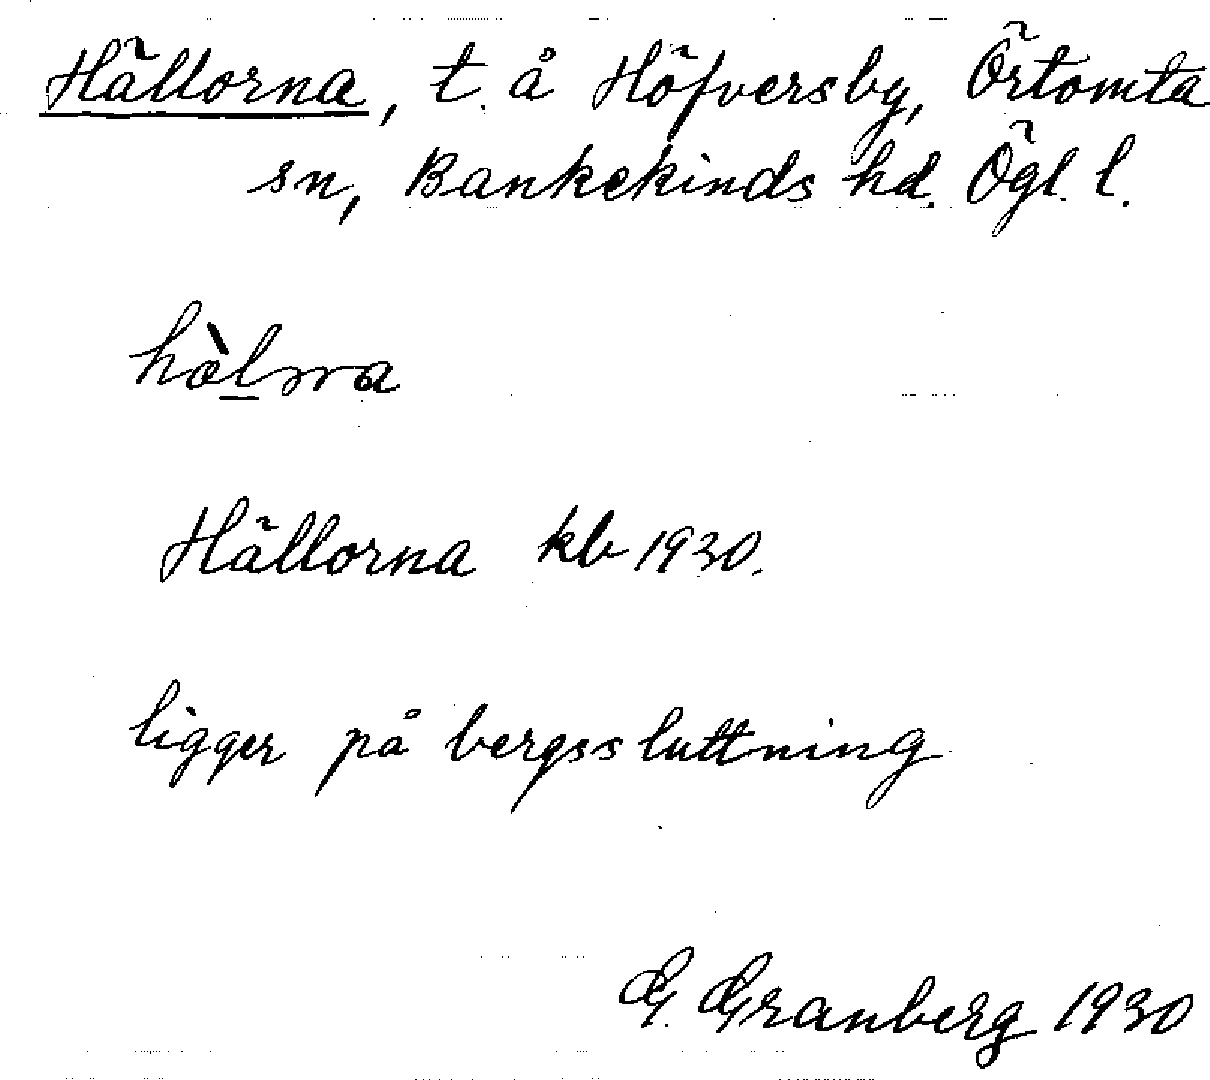 Hällorna, t. å Höfversby, Örtomta
sn, Bankekinds hd. Ögl. l.
Hällorna kb 1930.
ligger på bergssluttning
G. Granberg 1930